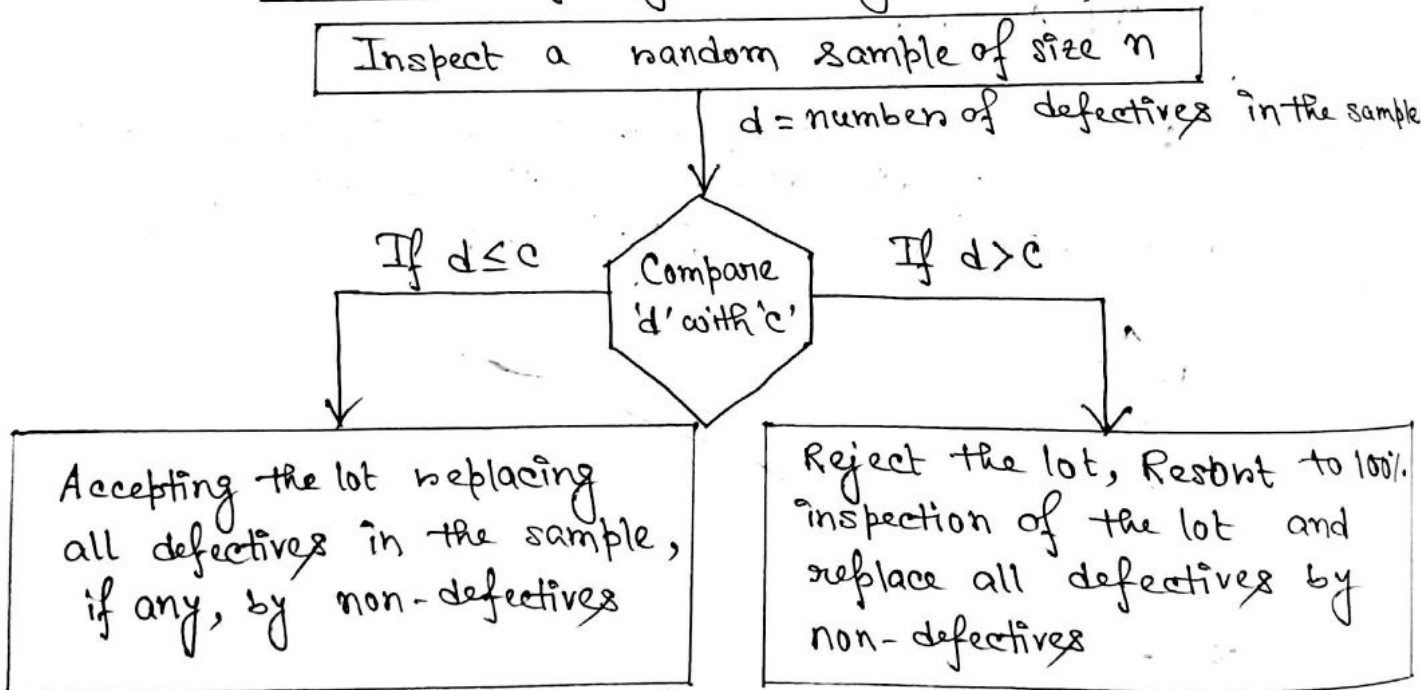 Inspect a random sample of size n
d = number of defectives in the sample
If d ≤ c
If d > c
Compare
'd' with 'c'
Accepting the lot replacing
all defectives in the sample,
if any, by non-defectives
Reject the lot, Resort to 100%
inspection of the lot and
replace all defectives by
non-defectives